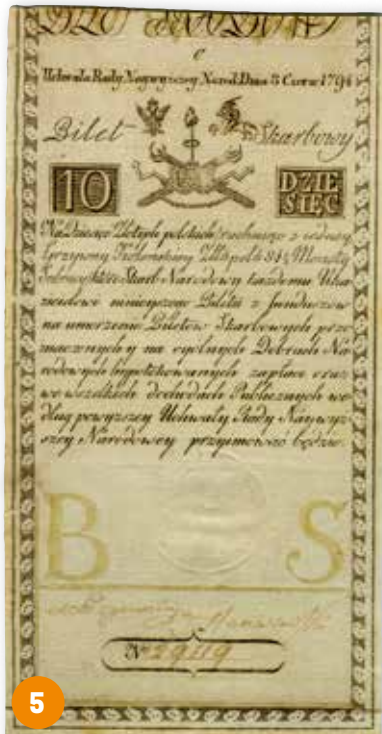 Uchwała Rady Naywyzszey Narod. Dnia 8 Czerw. 1794
Bilet Skarbowy
10 DZIE
SIĘC
Na Dziesięc Złotych polskich rachuiąc z iedney
Grzywny Kolonskiey Złł. pol. 84¼ Monetą
Srebrną, ktore Skarb Narodowy kazdemu Uka-
zicielowi ninieyszego Biletu z funduszow
na umorzenie Biletow Skarbowych prze-
znaczonych y na ogolnych Dobrach Na-
rodowych hypotekowanych zapłaci oraz
we wszelkich dochodach Publicznych we-
dług powyzszey Uchwały Rady Naywyz-
szey Narodowey przyimowac będzie.
B S
No 29119
5